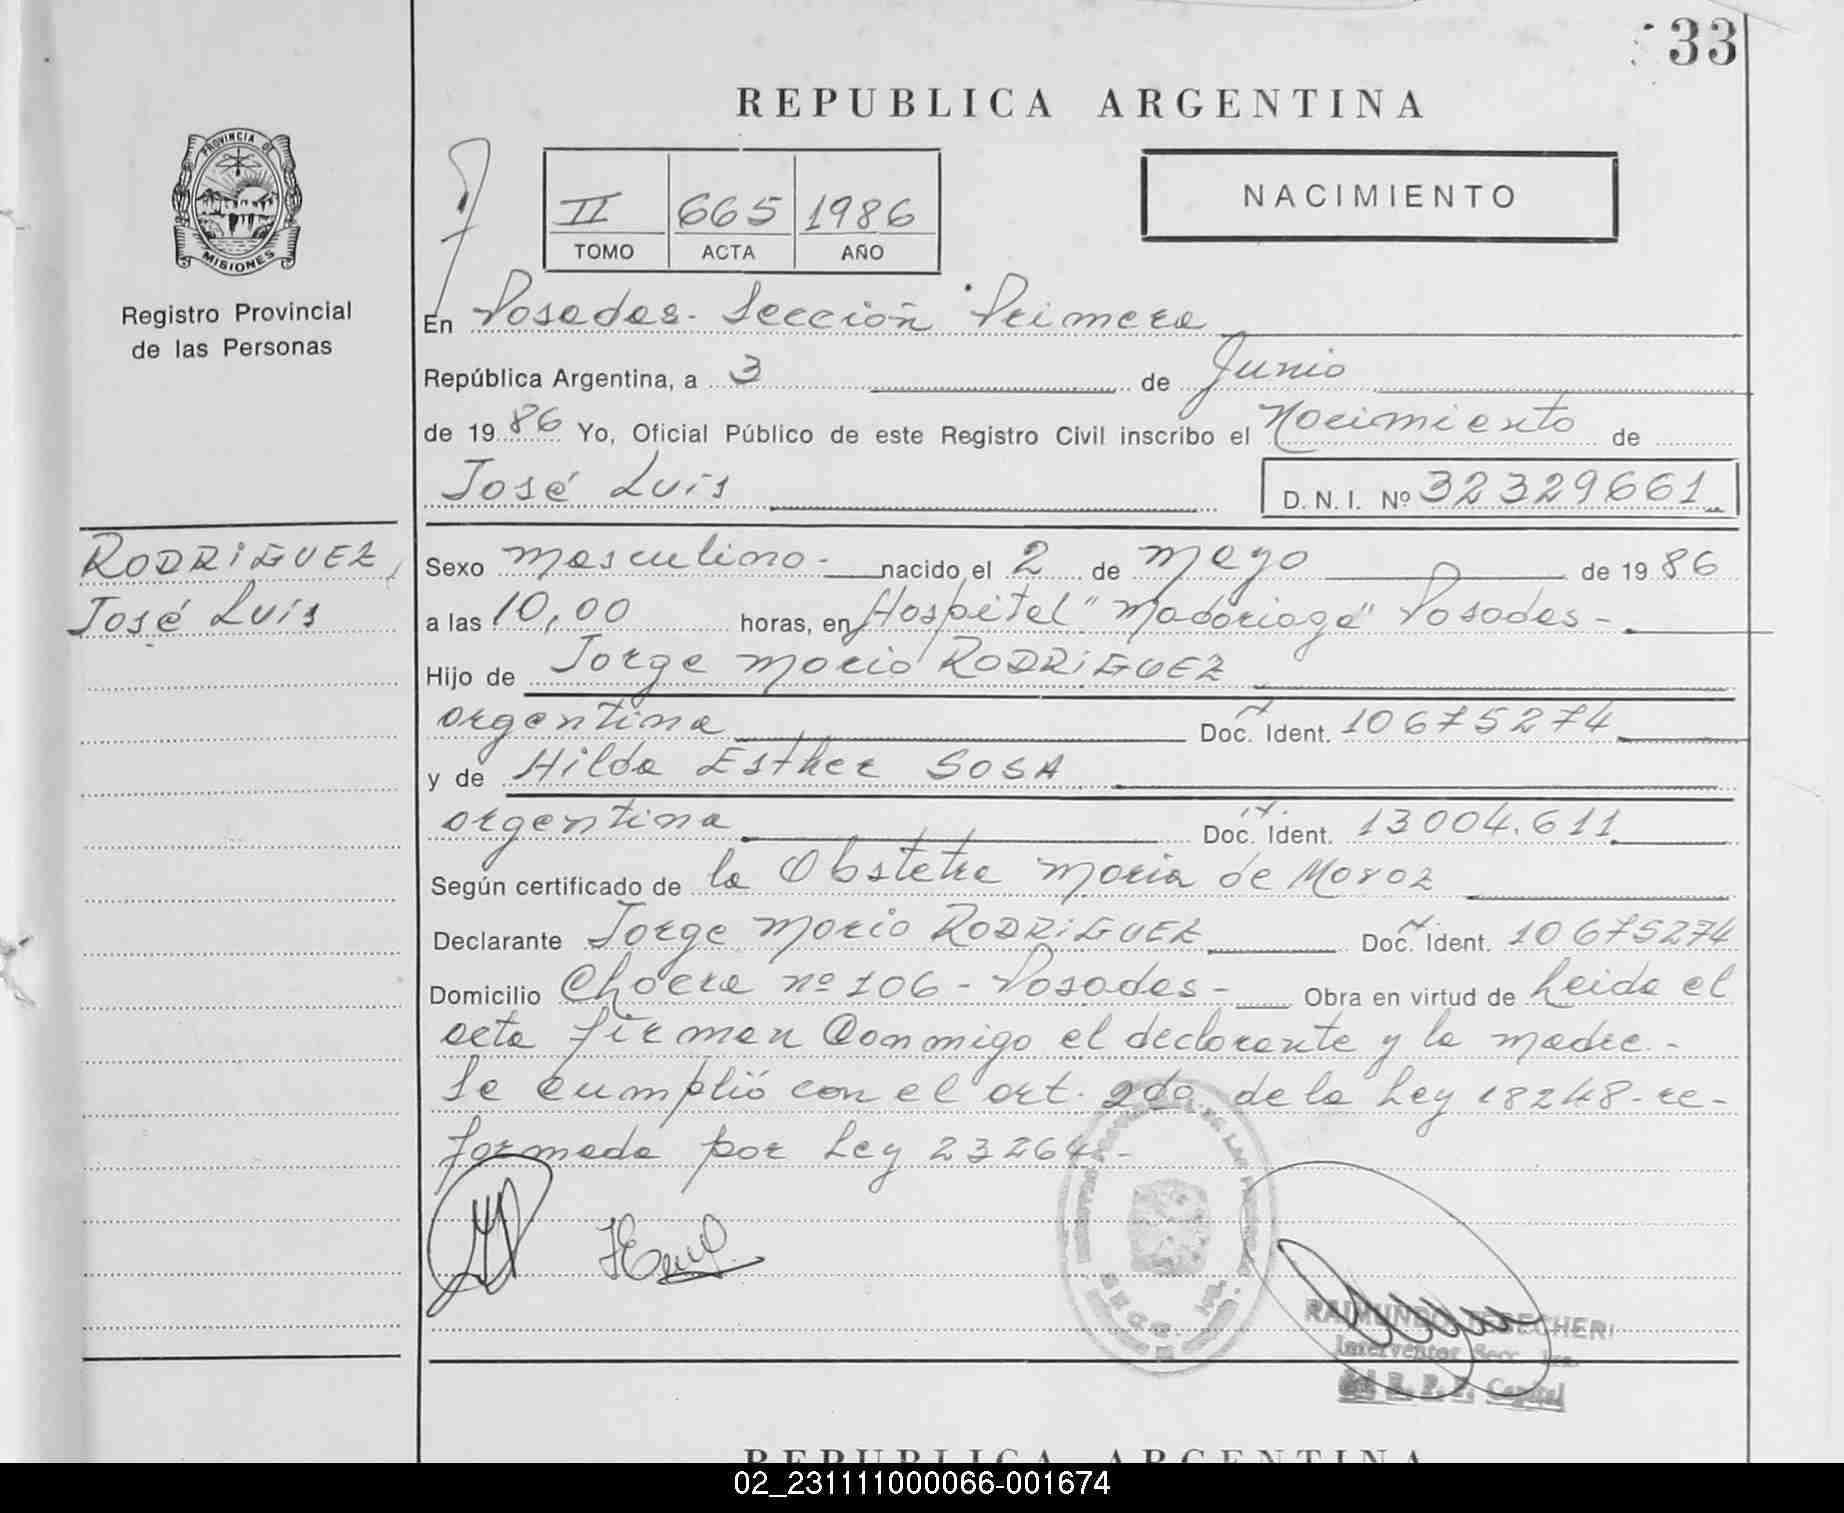 33
REPUBLICA ARGENTINA
PROVINCIA DE
MISIONES
Registro Provincial
de las Personas
II 665 1986
TOMO ACTA AÑO
NACIMIENTO
En Posadas - Sección Primera
República Argentina, a 3 de Junio
de 1986 Yo, Oficial Público de este Registro Civil inscribo el Nacimiento de
José Luis D. N. I. Nº 32329661
RODRIGUEZ,
José Luis
Sexo masculino - nacido el 2 de mayo de 1986
a las 10,00 horas, en Hospital "Madariaga" Posadas -
Hijo de Jorge Mario RODRIGUEZ
argentina Doc. Ident. 10675274
y de Hilda Esther SOSA
argentina Doc. Ident. 13004.611
Según certificado de la Obstetra Maria de Moroz
Declarante Jorge Mario RODRIGUEZ Doc. Ident. 10675274
Domicilio Chacra nº 106 - Posadas - Obra en virtud de Leida el
acta firman conmigo el declarante y la madre. -
Se cumplió con el art. 2do de la Ley 18248 - re-
formada por Ley 23264 -
RAIMUNDO
Interventor Secc. 1ra.
del R. P. P. Capital
REPUBLICA ARGENTINA
02_231111000066-001674